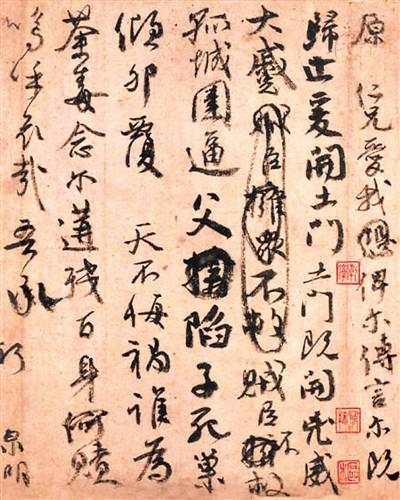 原 仁兄愛我俾尔傳言尔既
歸止爰開土門土門既開凶威
大蹙賊臣擁衆不救賊臣不救
孤城圍逼父陷子死巢
傾卵覆 天不悔禍誰為
荼毒念尔遘殘百身何贖
嗚呼哀哉吾承
泉明